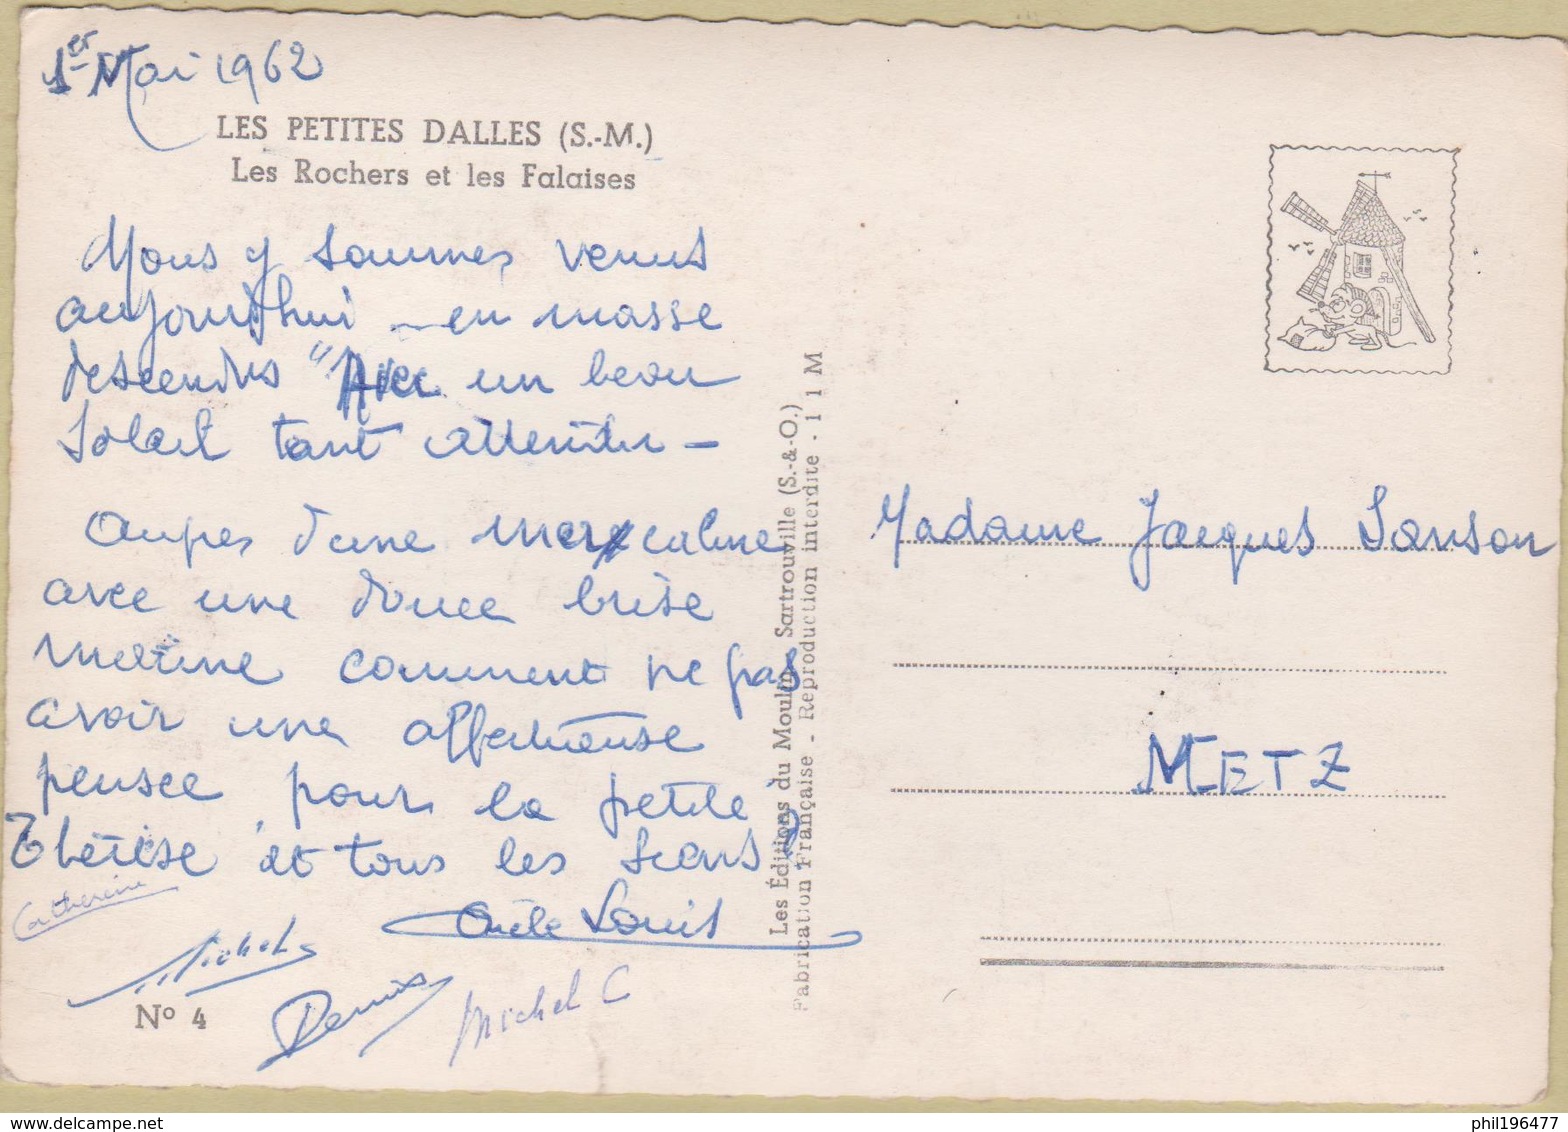 1er Mai 1962
LES PETITES DALLES (S.-M.)
Les Rochers et les Falaises
Nous y sommes venus
aujourd'hui - en masse
descendus "Avec un beau
Soleil tant attendu -
Aupres d'une mer calme
avec une douce brise
marine comment ne pas
avoir une affectueuse
pensee pour la petite
Thérèse et tous les siens ?
Catherine
Louis
Michel
Denis
Michel C
No 4
Les Éditions du Moulin, Sartrouville (S.-&-O.)
Fabrication Française - Reproduction interdite - 1 1 M
Madame Jacques Sanson
METZ
www.delcampe.net
phil196477